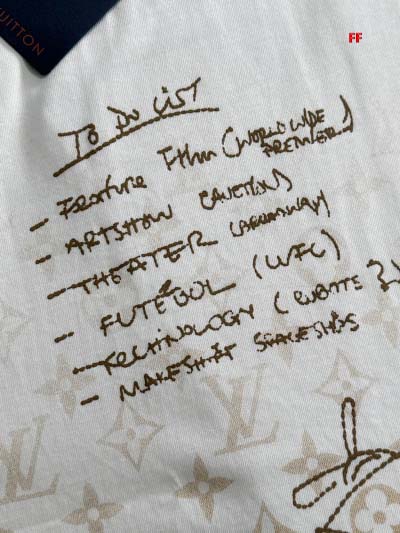 VUITTON
FF
TO DO LIST
- FEATURE FILM (WORLD WIDE
PREMIER)
- ARTSHOW (AUCTION)
- THEATER (BROADWAY)
- FUTEBOL (WFC)
- TECHNOLOGY (
- MAKESHIFT SPACESHIPS